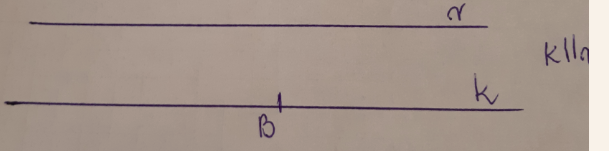 r
k||r
k
B